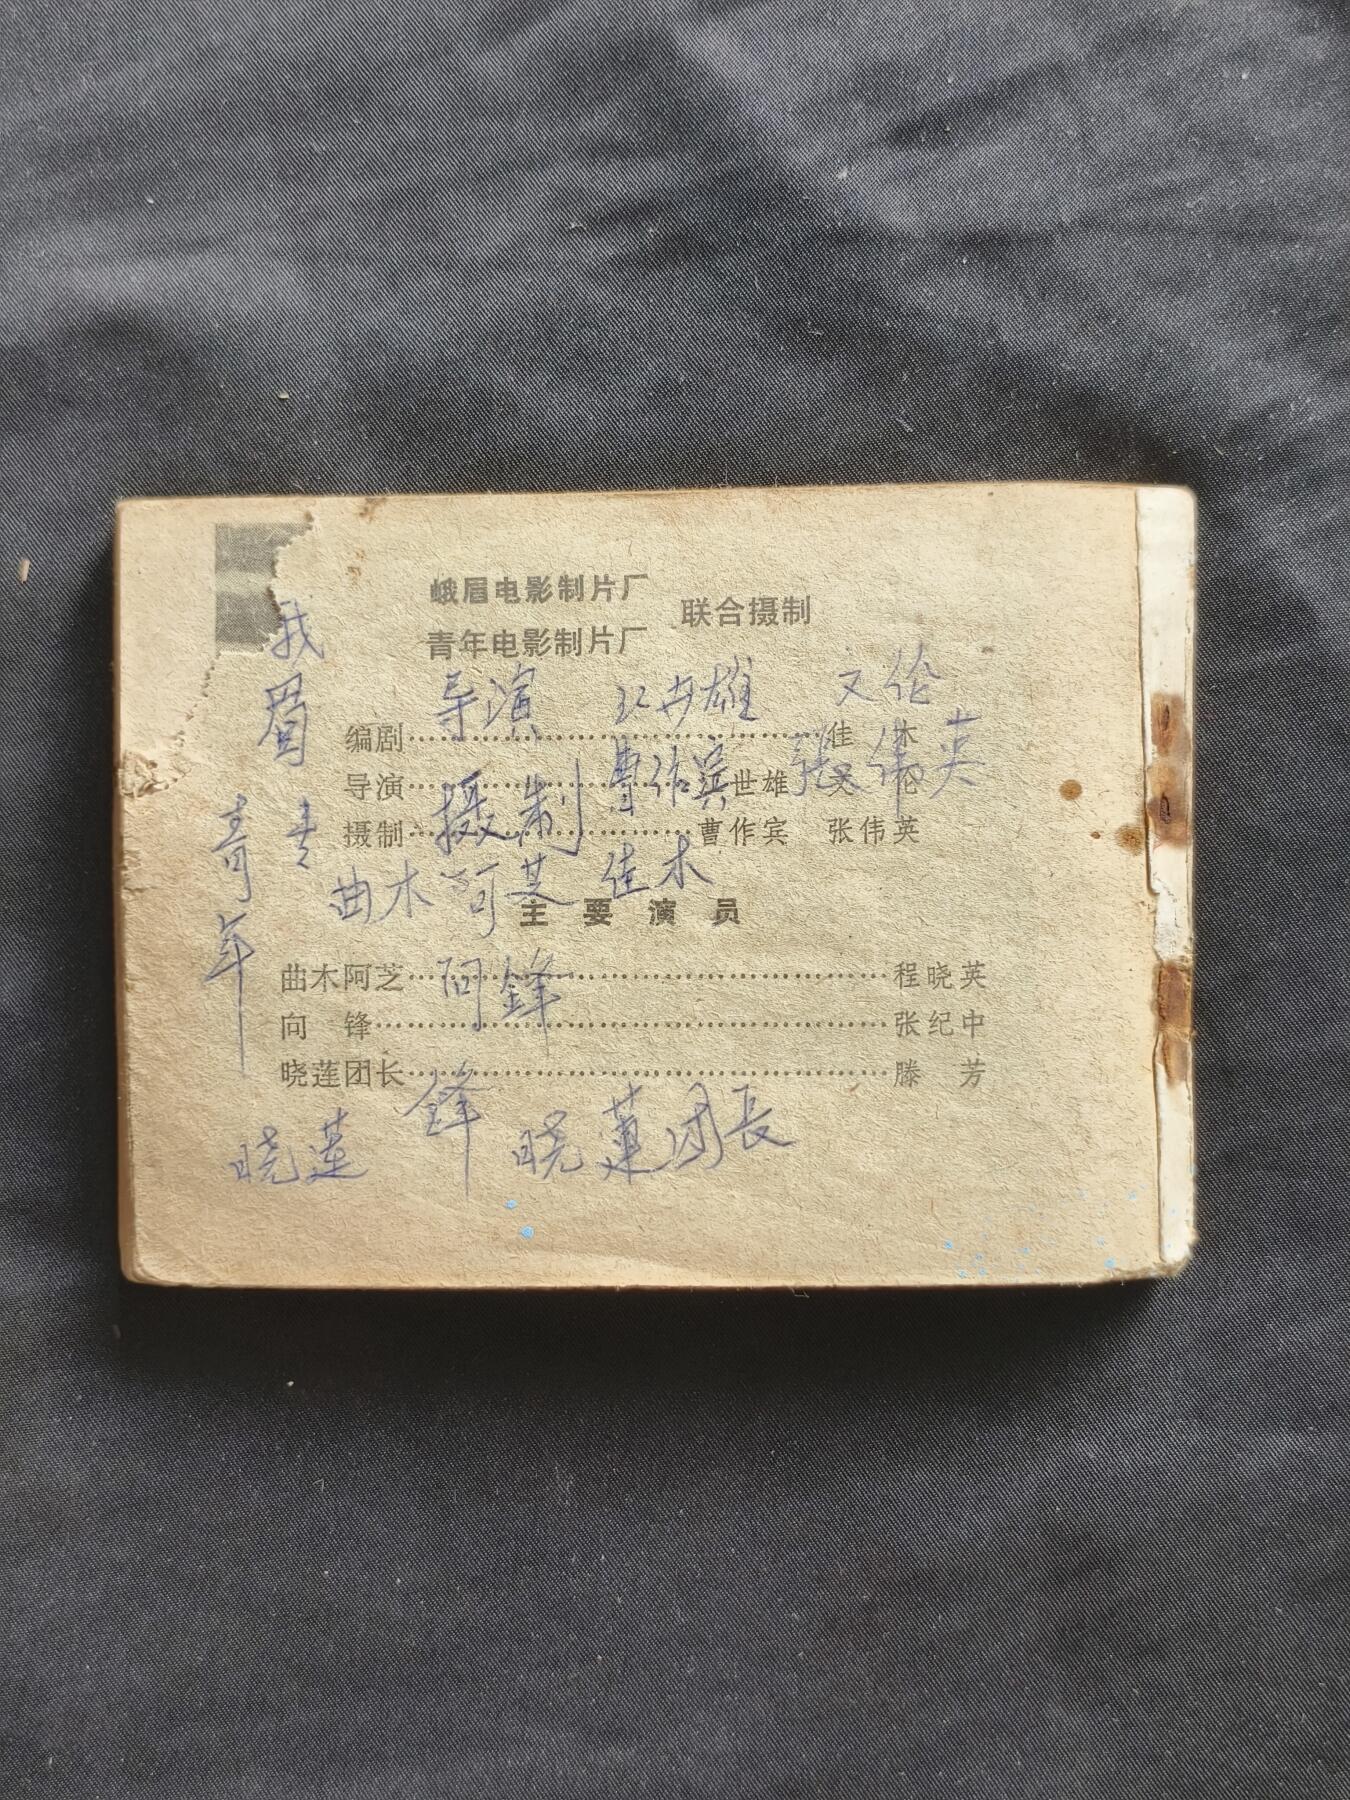 峨眉电影制片厂
青年电影制片厂
联合摄制
我眉
青年
导演 江世雄 文伦
编剧……佳木
导演……世雄 文伦
曹作宾 张伟英
摄制
摄制……曹作宾 张伟英
曲木阿芝 佳木
主要演员
曲木阿芝……程晓英
向锋
向 锋……张纪中
晓莲团长……滕 芳
锋
晓莲 晓莲团長